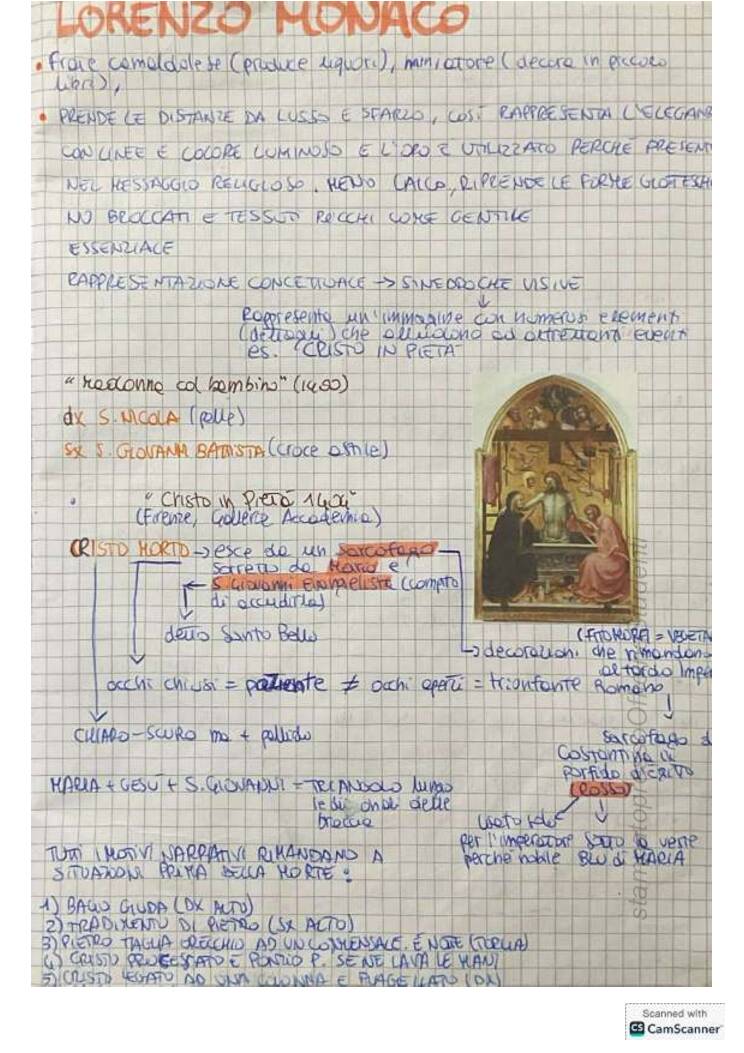 LORENZO MONACO
• Frate camaldolese (produce liquori), miniatore (decora in piccolo
libri),
• PRENDE LE DISTANZE DA LUSSO E SFARZO, COSÌ RAPPRESENTA L'ELEGAN
CON LINEE E COLORE LUMINOSO E L'ORO È UTILIZZATO PERCHÉ PRESEN
NEL MESSAGGIO RELIGIOSO. MENO LAICO, RIPRENDE LE FORME GIOTTESCH
NO BROCCATI E TESSUTI RICCHI COME GENTILE
ESSENZIALE
RAPPRESENTAZIONE CONCETTUALE → SINEDDOCHE VISIVE
↓
Rappresenta un'immagine con numerosi elementi
(dettagli) che alludono ad altrettanti eventi
es. "CRISTO IN PIETÀ"
"Madonna col bambino" (1400)
dx S. NICOLA (palle)
sx S. GIOVANNI BATTISTA (croce astile)
• "Cristo in Pietà 1404"
(Firenze, Galleria Accademia)
CRISTO MORTO → esce da un sarcofago
sorretto da Maria e
S. Giovanni Evangelista (compito
di accudirla)
detto Santo Bello
(FITOMORFI = VEGETA
→ decorazioni che rimandano
al tardo Impe
Romano
occhi chiusi = paziente ≠ occhi aperti = trionfante
CHIARO-SCURO ma + pallido
sarcofago d
Costantina in
porfido
(rosso)
MARIA + GESÙ + S. GIOVANNI = TRIANGOLO lungo
le diagonali delle
braccia
usato solo
per l'imperatore
perché nobile
sotto la veste
BLU di MARIA
TUTTI I MOTIVI NARRATIVI RIMANDANO A
SITUAZIONI PRIMA DELLA MORTE:
1) BACIO GIUDA (DX ALTO)
2) TRADIMENTO DI PIETRO (SX ALTO)
3) PIETRO TAGLIA ORECCHIO AD UN COMMENSALE. È NOTTE (TORCIA)
4) CRISTO PROCESSATO E PONZIO P. SE NE LAVA LE MANI
5) CRISTO LEGATO AD UNA COLONNA E FLAGELLATO (DX)
Scanned with
CS CamScanner